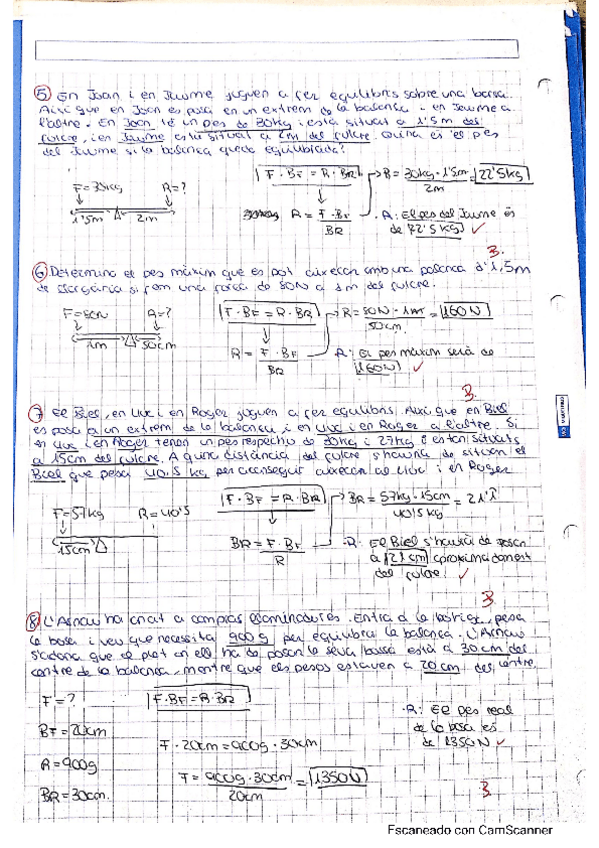 5 En Joan i en Jaume juguen a fer equilibris sobre una barra.
Així que en Joan es posa en un extrem de la balansa i en Jaume a
l'altre. En Joan té un pes de 30kg i està situat a 1'5m del
fulcre, i en Jaume està situat a 2m del fulcre. Quina és el pes
del Jaume si la balansa queda equilibrada?
F=30kg R=?
1'5m 2m
F·BF = R·BR
R = F·BF / BR
R = 30kg·1'5m / 2m = 22'5kg
·R: El pes del Jaume és
de 22'5 kg
B.
6 Determina el pes màxim que es pot aixecar amb una palanca d'1,5m
de llargària si fem una força de 80N a 1m del fulcre.
F=80N R=?
1m 50cm
F·BF = R·BR
R = F·BF / BR
R = 80N·1m / 50cm = 160N
·R: El pes màxim serà de
160N
B
7 El Biel, en Uxi i en Roger juguen a fer equilibris. Així que en Biel
es posa a un extrem de la balansa i en Uxi i en Roger a l'altre. Si
en Uxi i en Roger tenen un pes respectiu de 30kg i 27kg i estan situats
a 15cm del fulcre. A quina distància del fulcre s'hauria de situar el
Biel que pesa 40'5 kg per aconseguir aixecar al Uxi i en Roger
F=57kg R=40'5
15cm
F·BF = R·BR
BR = F·BF / R
BR = 57kg·15cm / 40'5kg = 21'1
·R: El Biel s'haurà de posar
a 21cm aproximadament
del fulcre.
B
8 L'Arnau ha anat a comprar
pesa
la bossa i veu que necessita 900g per equilibrar la balansa. L'Arnau
s'adona que el plat on ell ha de posar la seva bossa està a 30cm del
centre de la balansa, mentre que els pesos estaven a 20cm del centre.
F=?
BF=20cm
R=900g
BR=30cm.
F·BF=R·BR
F·20cm=900g·30cm
F=900g·30cm / 20cm = 1350N
·R: El pes real
de la bossa és
de 1350N
B
Escaneado con CamScanner